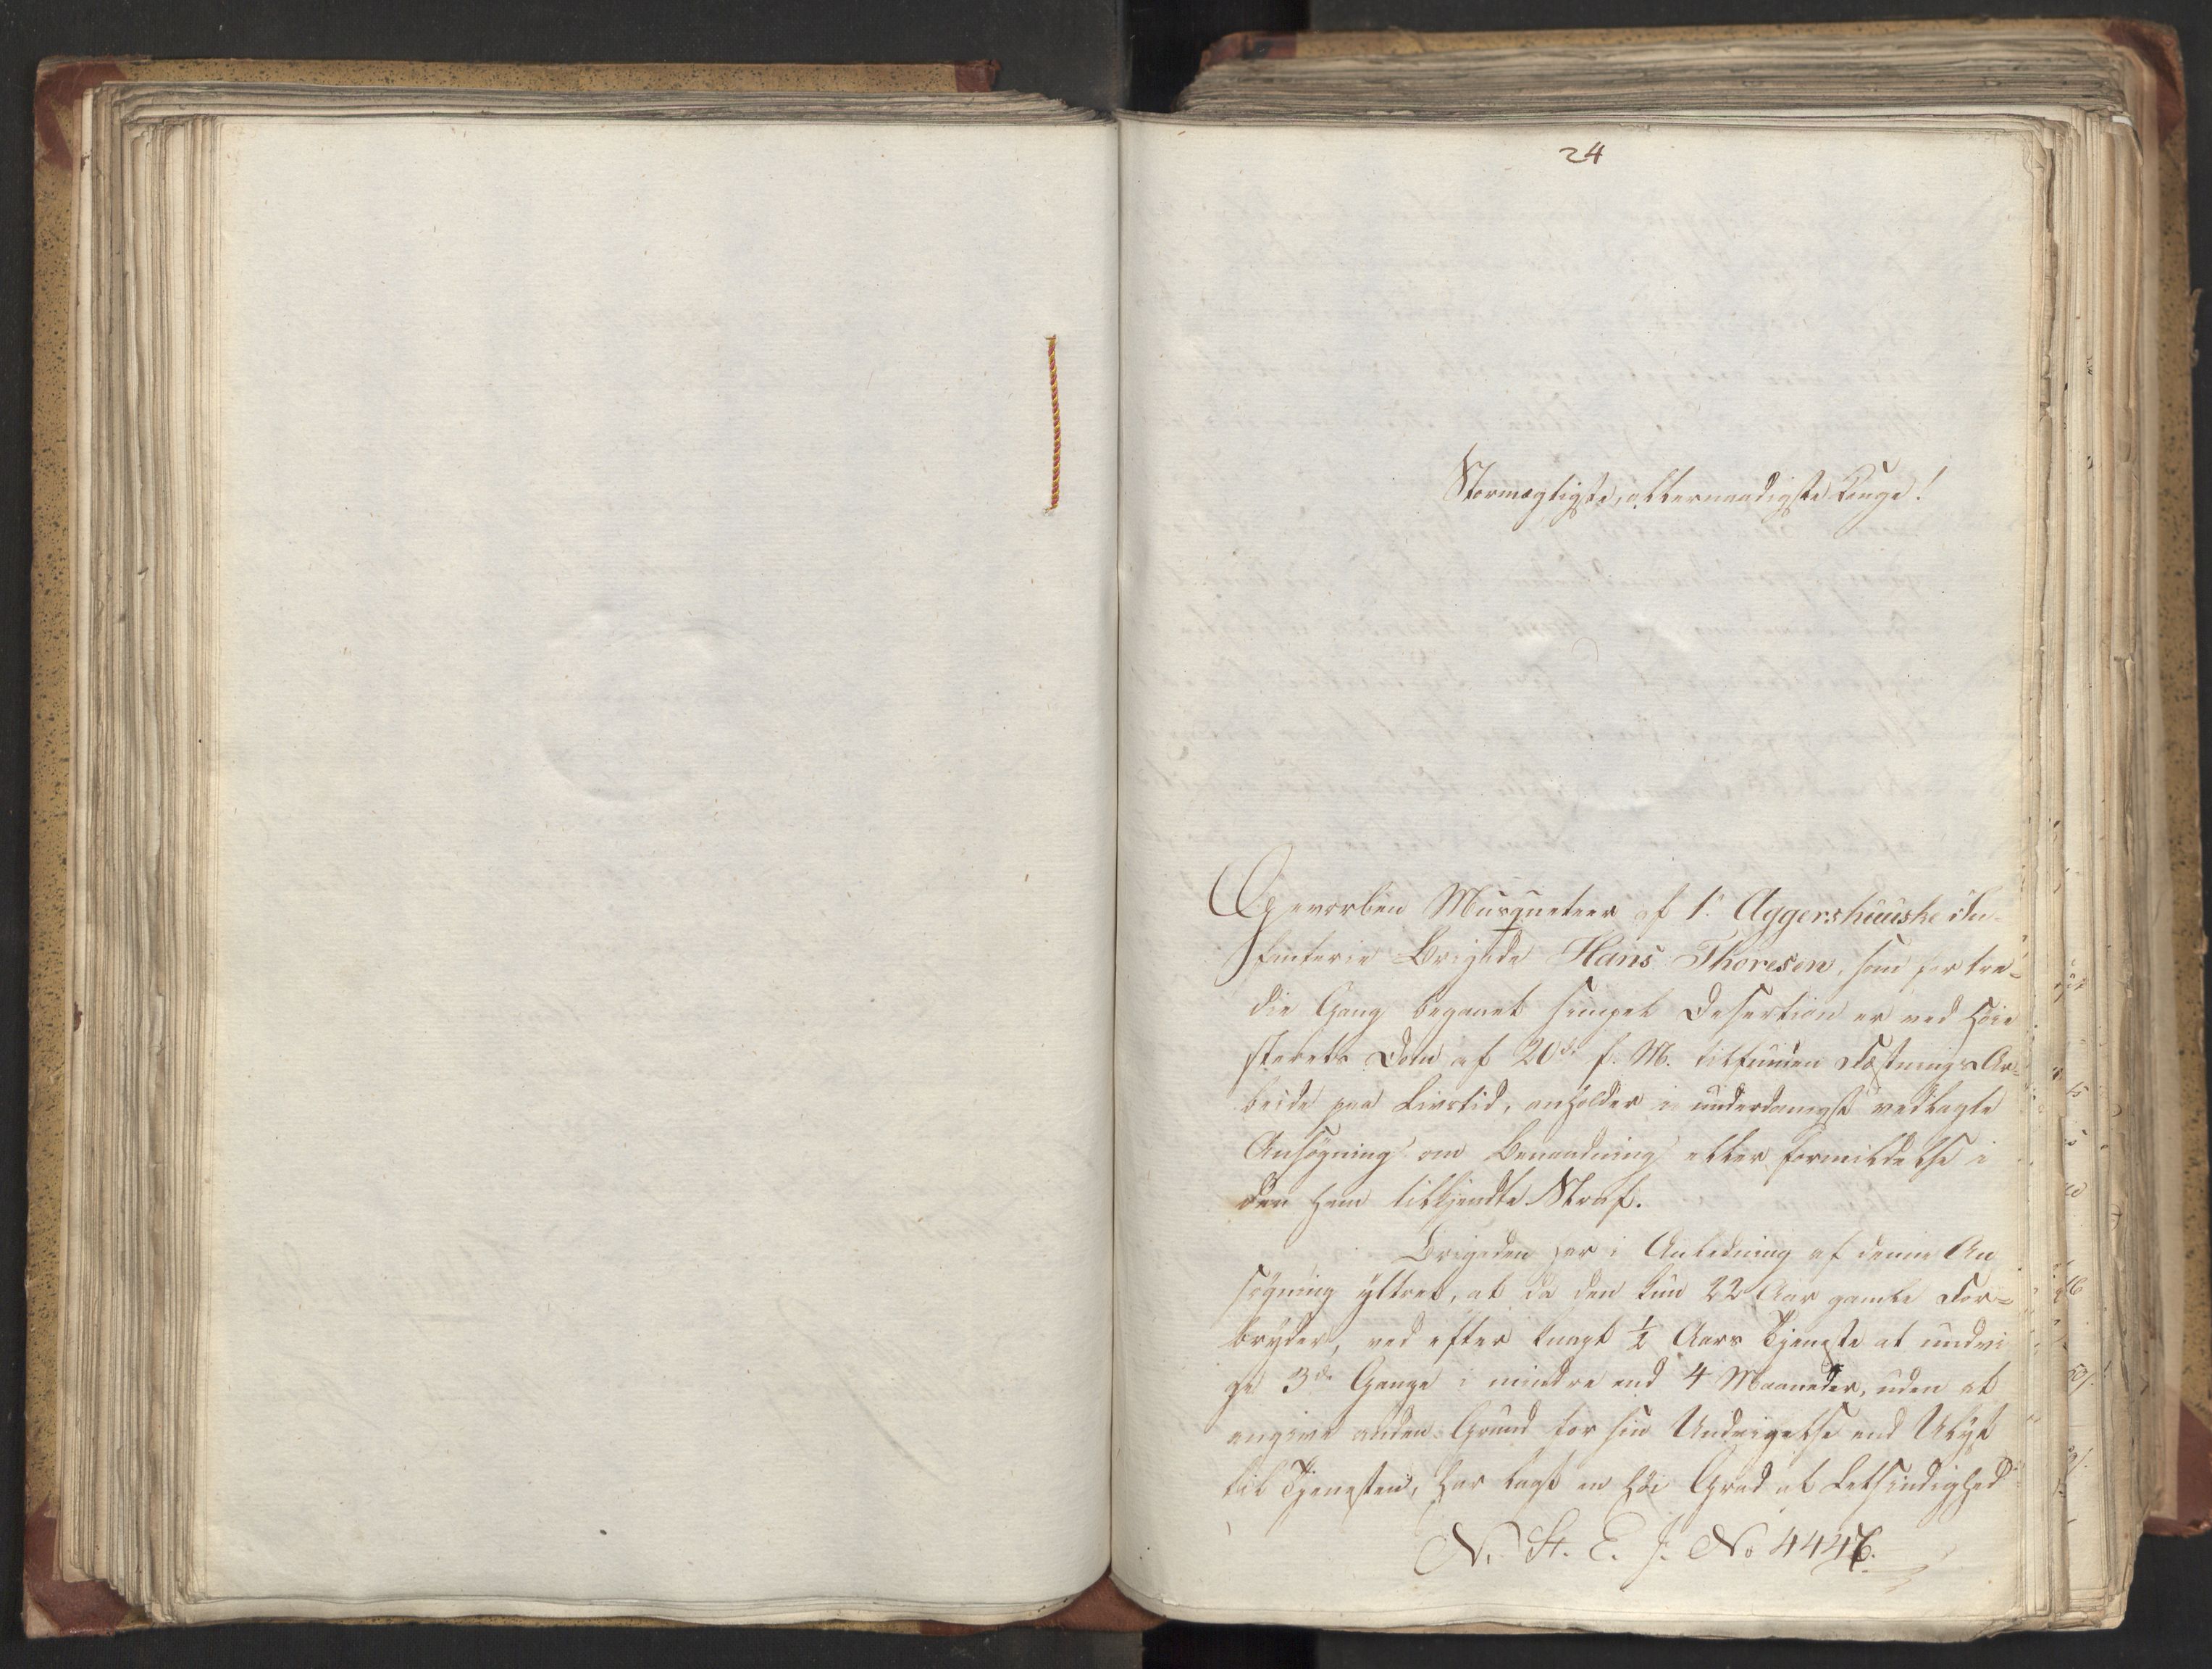 24
Stormægtigste, allernaadigste Konge!
Gevorben Musqueteer af 1ste Aggershuuske In-
fanterie Brigade Hans Thoresen, som for tre-
die Gang begaaet simpel Desertion er ved Høie
sterets Dom af 20de f. M. tilfunden Fæstnings Ar-
beide paa Livstid, anholder i underdanigst vedlagte
Ansøgning om Benaadning eller Formildelse i
den ham tilkjendte Straf.
Brigaden har i Anledning af denne An
søgning yttret, at da den kun 22 Aar gamle For-
bryder, ved efter knapt ½ Aars Tjeneste at undvi
ge 3de Gange i mindre end 4 Maaneder, uden at
angive anden Grund for sin Undvigelse end Ulyst
til Tjenesten, har lagt en høi Grad af Letsindighed
N. St. E. J. No 4446.